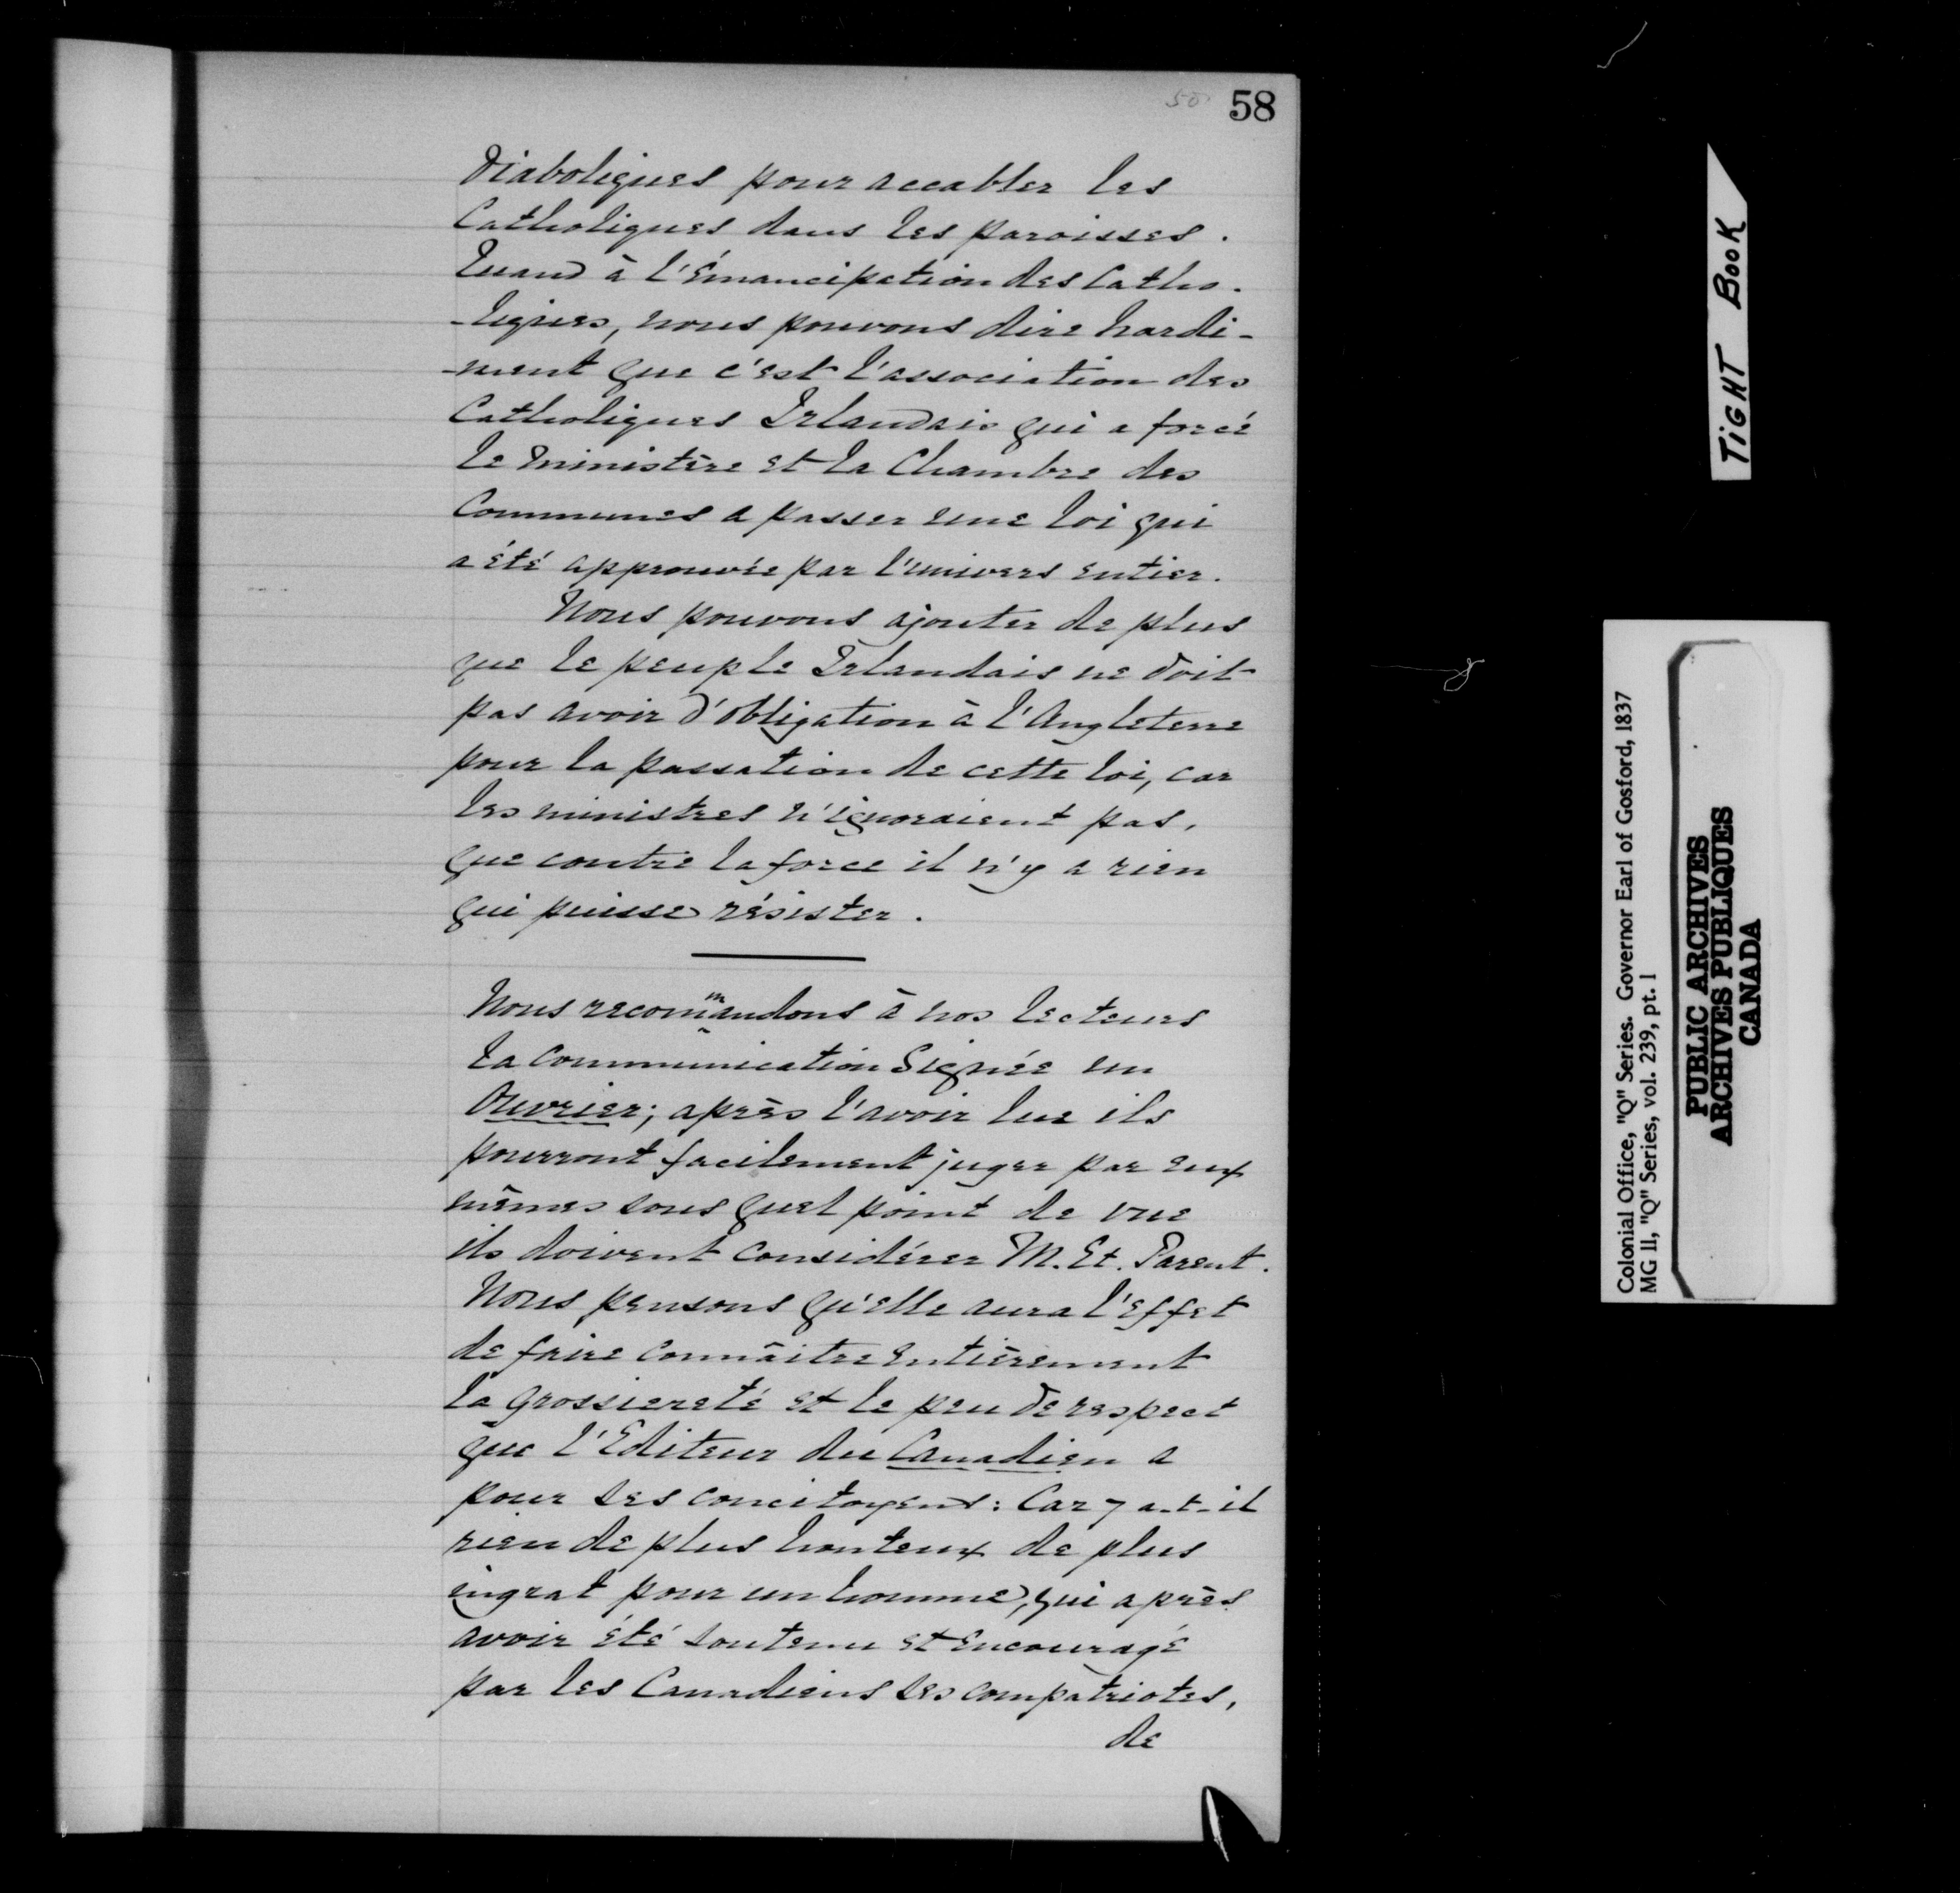 50 58
Diaboliques pour accabler les
Catholiques dans les paroisses.
Quand à l'Émancipation des Catho-
-liques, nous pouvons dire hardi-
-ment que c'est l'association des
Catholiques Irlandais qui a forcé
le Ministère et la Chambre des
Communes a passer une loi qui
a été approuvée par l'univers entier.
Nous pouvons ajouter de plus
que le peuple Irlandais ne doit
pas avoir d'obligation à l'Angleterre
pour la passation de cette loi, car
les ministres n'ignoraient pas,
que contre la force il n'y a rien
qui puisse résister.
Nous recommandons à nos lecteurs
la communication Signée un
Ouvrier; après l'avoir lue ils
pourront facilement juger par eux
mêmes sous quel point de vue
ils doivent considérer M. Et. Parent.
Nous pensons qu'elle aura l'effet
de faire connâitre entièrement
la grossiereté et le peu de respect
que l'Editeur du Canadien a
pour ses concitoyens: Car y a-t-il
rien de plus honteux de plus
ingrat pour un homme, qui après
avoir été soutenu et encouragé
par les Canadiens ses compatriotes,
de
TIGHT BOOK
Colonial Office, "Q" Series. Governor Earl of Gosford, 1837
MG 11, "Q" Series, vol. 239, pt. 1
PUBLIC ARCHIVES
ARCHIVES PUBLIQUES
CANADA